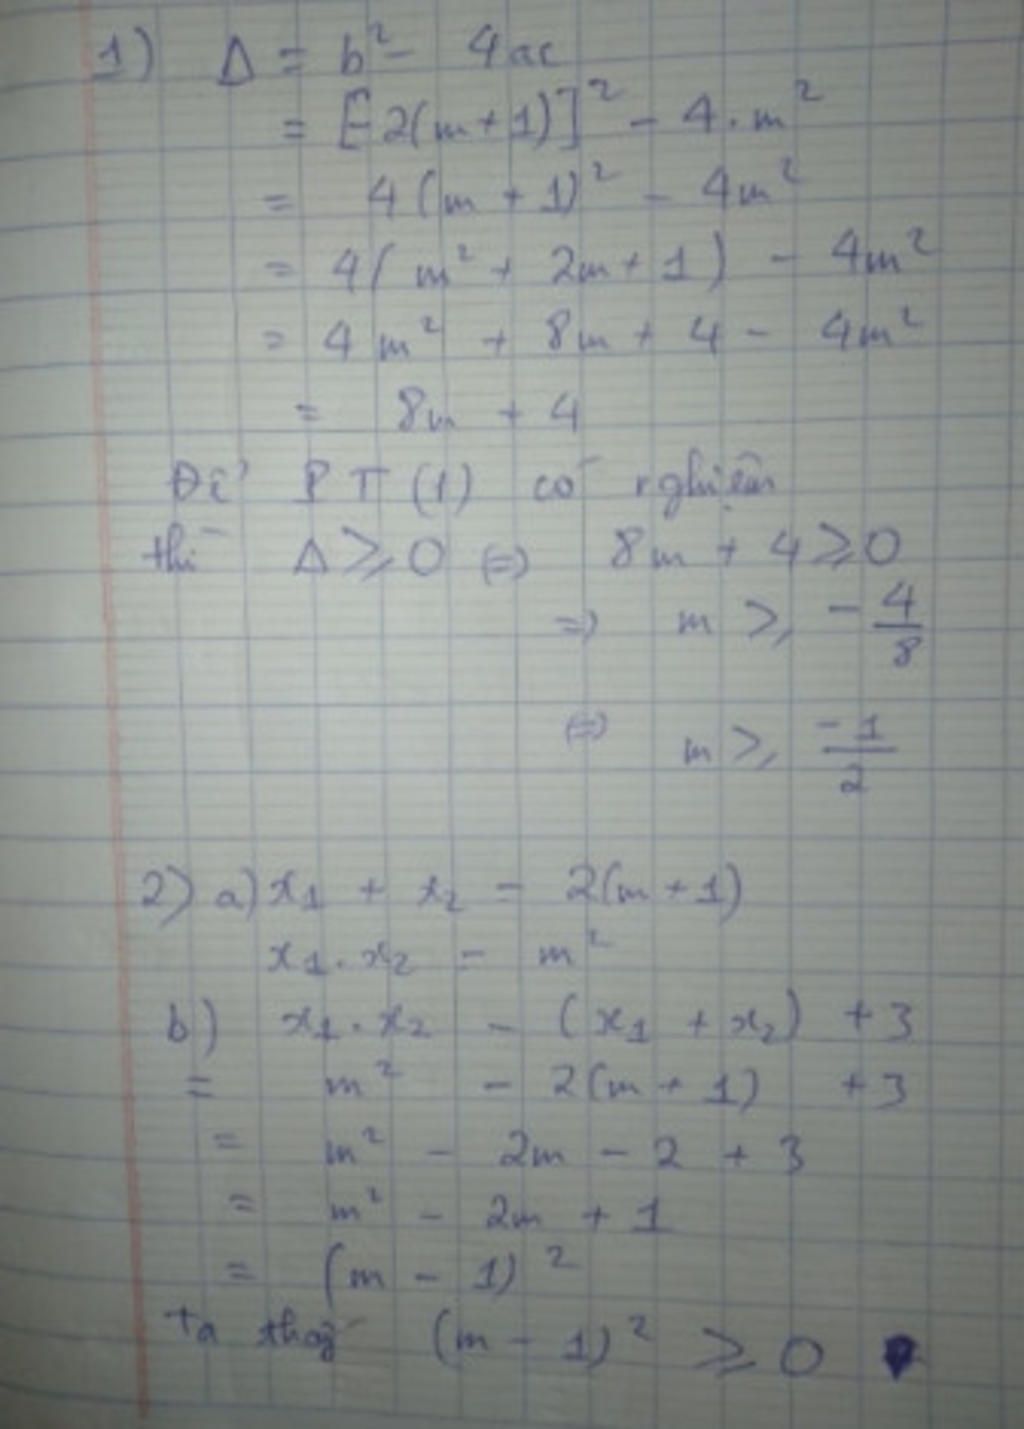 1) Δ = b² - 4ac
= [-2(m+1)]² - 4.m²
= 4(m + 1)² - 4m²
= 4(m² + 2m + 1) - 4m²
= 4m² + 8m + 4 - 4m²
= 8m + 4
Để PT (1) có nghiệm
thì Δ ⩾ 0 (=) 8m + 4 ⩾ 0
=) m ⩾ - 4/8
(=) m ⩾ -1/2
2) a) x₁ + x₂ = 2(m+1)
x₁.x₂ = m²
b) x₁.x₂ - (x₁ + x₂) + 3
= m² - 2(m + 1) + 3
= m² - 2m - 2 + 3
= m² - 2m + 1
= (m - 1)²
Ta thấy (m - 1)² ⩾ 0